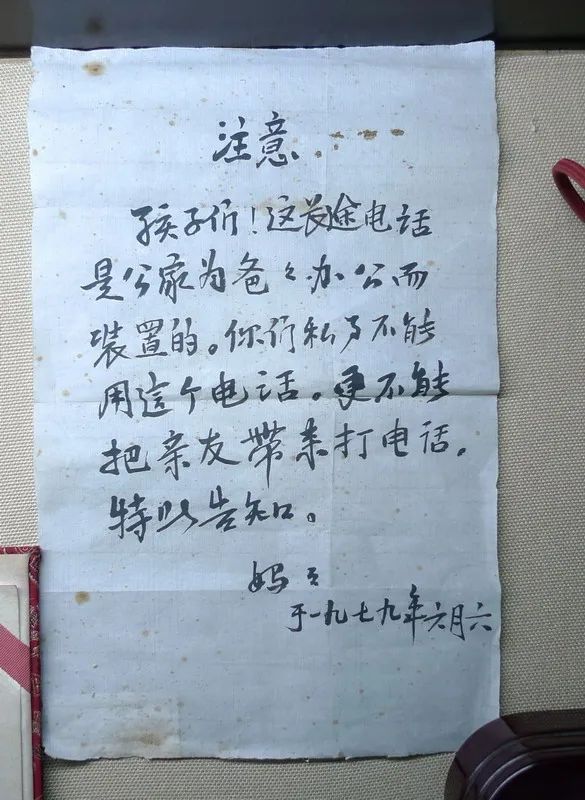 注意.....
孩子们！这长途电话
是公家为爸々办公而
装置的。你们私事不能
用這个电话。更不能
把亲友带来打电话。
特此告知。
妈々
于一九七九年六月六